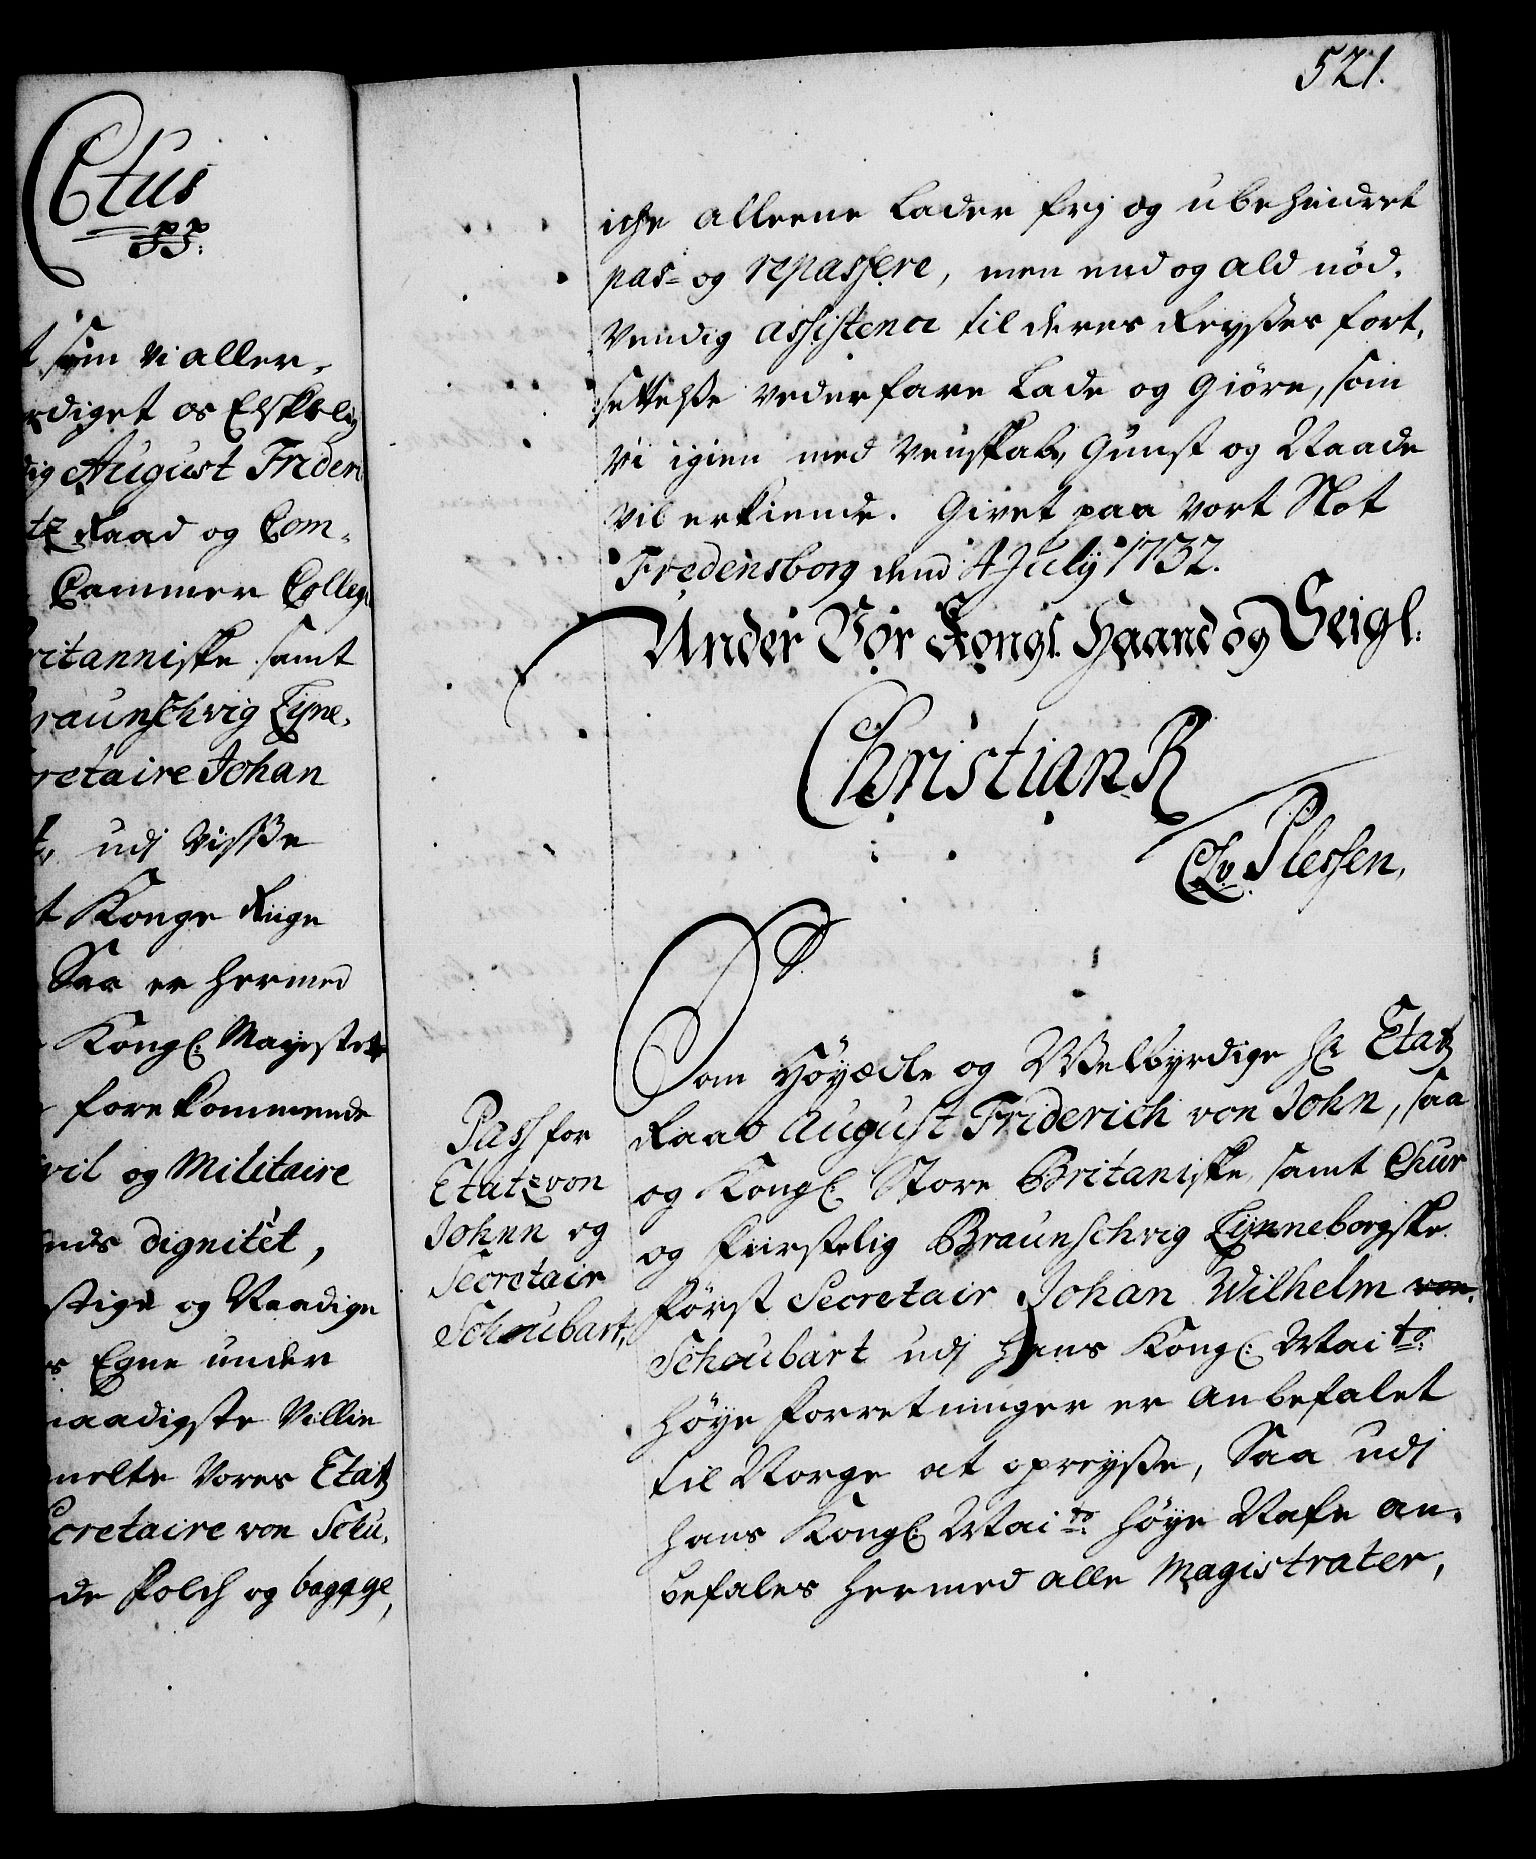 Ctus
PP.
t som vi aller-
rdiget os Elskelig
dig August Frider
tz Raad og Com-
Cammer Colleg
ritanniske samt
raunschvig Lyne-
cretaire Johan
udj visse
t Konge Riige
Saa er hermed
Kongl: Mayestets
forekommende
ivil og Militaire
ends dignitét,
stige og Naadige
s Egne under
naadigste Villie
melte Vores Etatz
ecretaire von Schu-
de folch og bagage,
521.
iche alleene lader frj og ubehindret
pas- og repassere, men end og ald nöd-
vendig assistence til deres Reysses fort-
settelse vederfare lade og Giöre, som
vi igien med venskab, Gunst og Naade
vil erkiende. Givet paa vort Slot
Fredensborg dend 4 July 1732.
Under Vor Kongl. Haand og Seigl:
Christian R
CLv. Plessen,
Pass for
Etatz von
Johnn og
Secretair
Schoubart,
Som Höyædle og Welbyrdige Hr Etatz
Raad August Friderich von John, saa
og Kongl: Store Britaniske, samt Chur
og fürstelig Braunschvig Lynneborgske
först Secretair Johan Wilhelm von
Schoubart udj hans Kongl: Maits
höye forretninger er anbefalet
til Norge at opreysse, Saa udj
hans Kongl: Maits höye Nafn an-
befales hermed alle Magistrater,